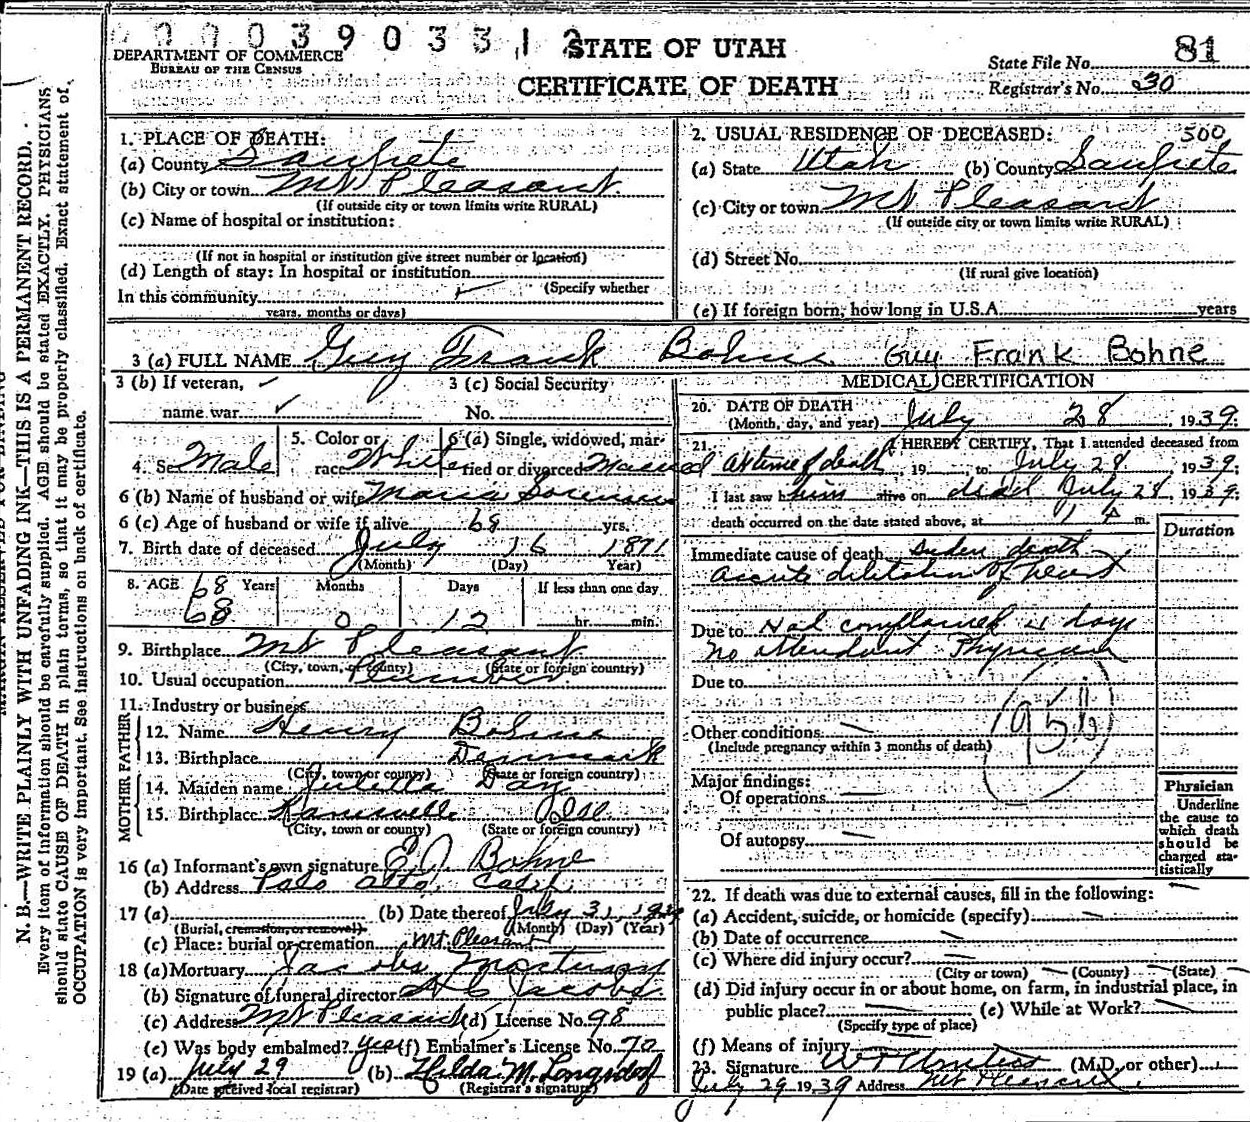 0003903312
STATE OF UTAH
CERTIFICATE OF DEATH
DEPARTMENT OF COMMERCE
BUREAU OF THE CENSUS
State File No. 81
Registrar's No. 30
N. B.—WRITE PLAINLY WITH UNFADING INK—THIS IS A PERMANENT RECORD.
Every item of information should be carefully supplied. AGE should be stated EXACTLY. PHYSICIANS
should state CAUSE OF DEATH in plain terms, so that it may be properly classified. Exact statement of
OCCUPATION is very important. See instructions on back of certificate.
1. PLACE OF DEATH:
(a) County Sanpete
(b) City or town Mt Pleasant
(If outside city or town limits write RURAL)
(c) Name of hospital or institution:
(If not in hospital or institution give street number or location)
(d) Length of stay: In hospital or institution
(Specify whether
In this community
years, months or days)
2. USUAL RESIDENCE OF DECEASED: 500
(a) State Utah (b) County Sanpete
(c) City or town Mt Pleasant
(If outside city or town limits write RURAL)
(d) Street No.
(If rural give location)
(e) If foreign born, how long in U.S.A. years
3 (a) FULL NAME Guy Frank Bohne Guy Frank Bohne
3 (b) If veteran, 3 (c) Social Security
name war No.
4. Sex Male 5. Color or race White 6 (a) Single, widowed, married or divorced Married
6 (b) Name of husband or wife Maria Sorensen
6 (c) Age of husband or wife if alive 68 yrs.
7. Birth date of deceased July 16 1871
(Month) (Day) (Year)
8. AGE 68 Years Months Days If less than one day
68 0 12 hr. min.
9. Birthplace Mt Pleasant
(City, town, or county) (State or foreign country)
10. Usual occupation
11. Industry or business
FATHER
12. Name Henry Bohne
13. Birthplace Denmark
(City, town or county) (State or foreign country)
MOTHER
14. Maiden name Day
15. Birthplace Ill
(City, town or county) (State or foreign country)
16 (a) Informant's own signature E J Bohne
(b) Address Palo Alto, Calif
17 (a) (b) Date thereof July 31, 1939
(Burial, cremation, or removal) (Month) (Day) (Year)
(c) Place: burial or cremation Mt. Pleasant
18 (a) Mortuary Jacobs Mortuary
(b) Signature of funeral director A C Jacobs
(c) Address Mt Pleasant (d) License No. 98
(e) Was body embalmed? yes (f) Embalmer's License No. 70
19 (a) July 29 (b) Hilda M. Longsdorf
(Date received local registrar) (Registrar's signature)
MEDICAL CERTIFICATION
20. DATE OF DEATH July 28, 1939:
(Month, day, and year)
21. I HEREBY CERTIFY, That I attended deceased from
At time of death, 19 to July 28 1939;
I last saw him alive on dead July 28 1939;
death occurred on the date stated above, at 1 A m.
Duration
Immediate cause of death Suden death
Accute dilitation of heart
Due to Had complained 4 days
No attendant Physician
Due to
95b
Other conditions
(Include pregnancy within 3 months of death)
Major findings:
Of operations
Of autopsy
Physician
Underline
the cause to
which death
should be
charged sta-
tistically
22. If death was due to external causes, fill in the following:
(a) Accident, suicide, or homicide (specify)
(b) Date of occurrence
(c) Where did injury occur?
(City or town) (County) (State)
(d) Did injury occur in or about home, on farm, in industrial place, in
public place? (e) While at Work?
(Specify type of place)
(f) Means of injury
23. Signature (M.D. or other)
July 29 1939 Address Mt Pleasant